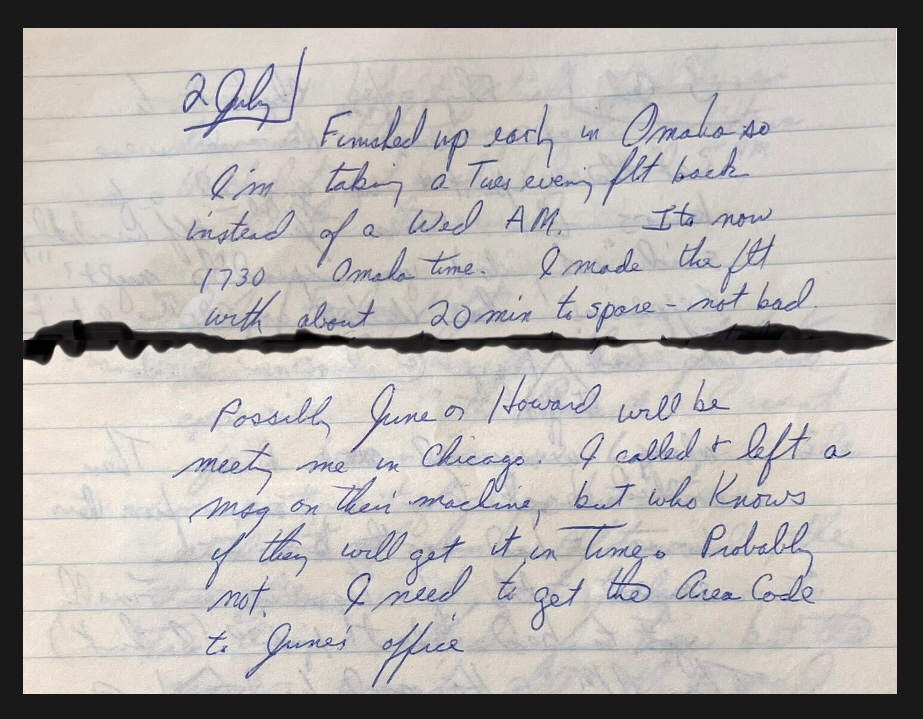 2 July
Finished up early in Omaha so
I'm taking a Tues evening flt back
instead of a Wed AM. Its now
1730 Omaha time. I made the flt
with about 20 min to spare - not bad.
Possibly June or Howard will be
meeting me in Chicago. I called + left a
msg on their machine, but who knows
if they will get it in time. Probably
not. I need to get the Area Code
to June's office